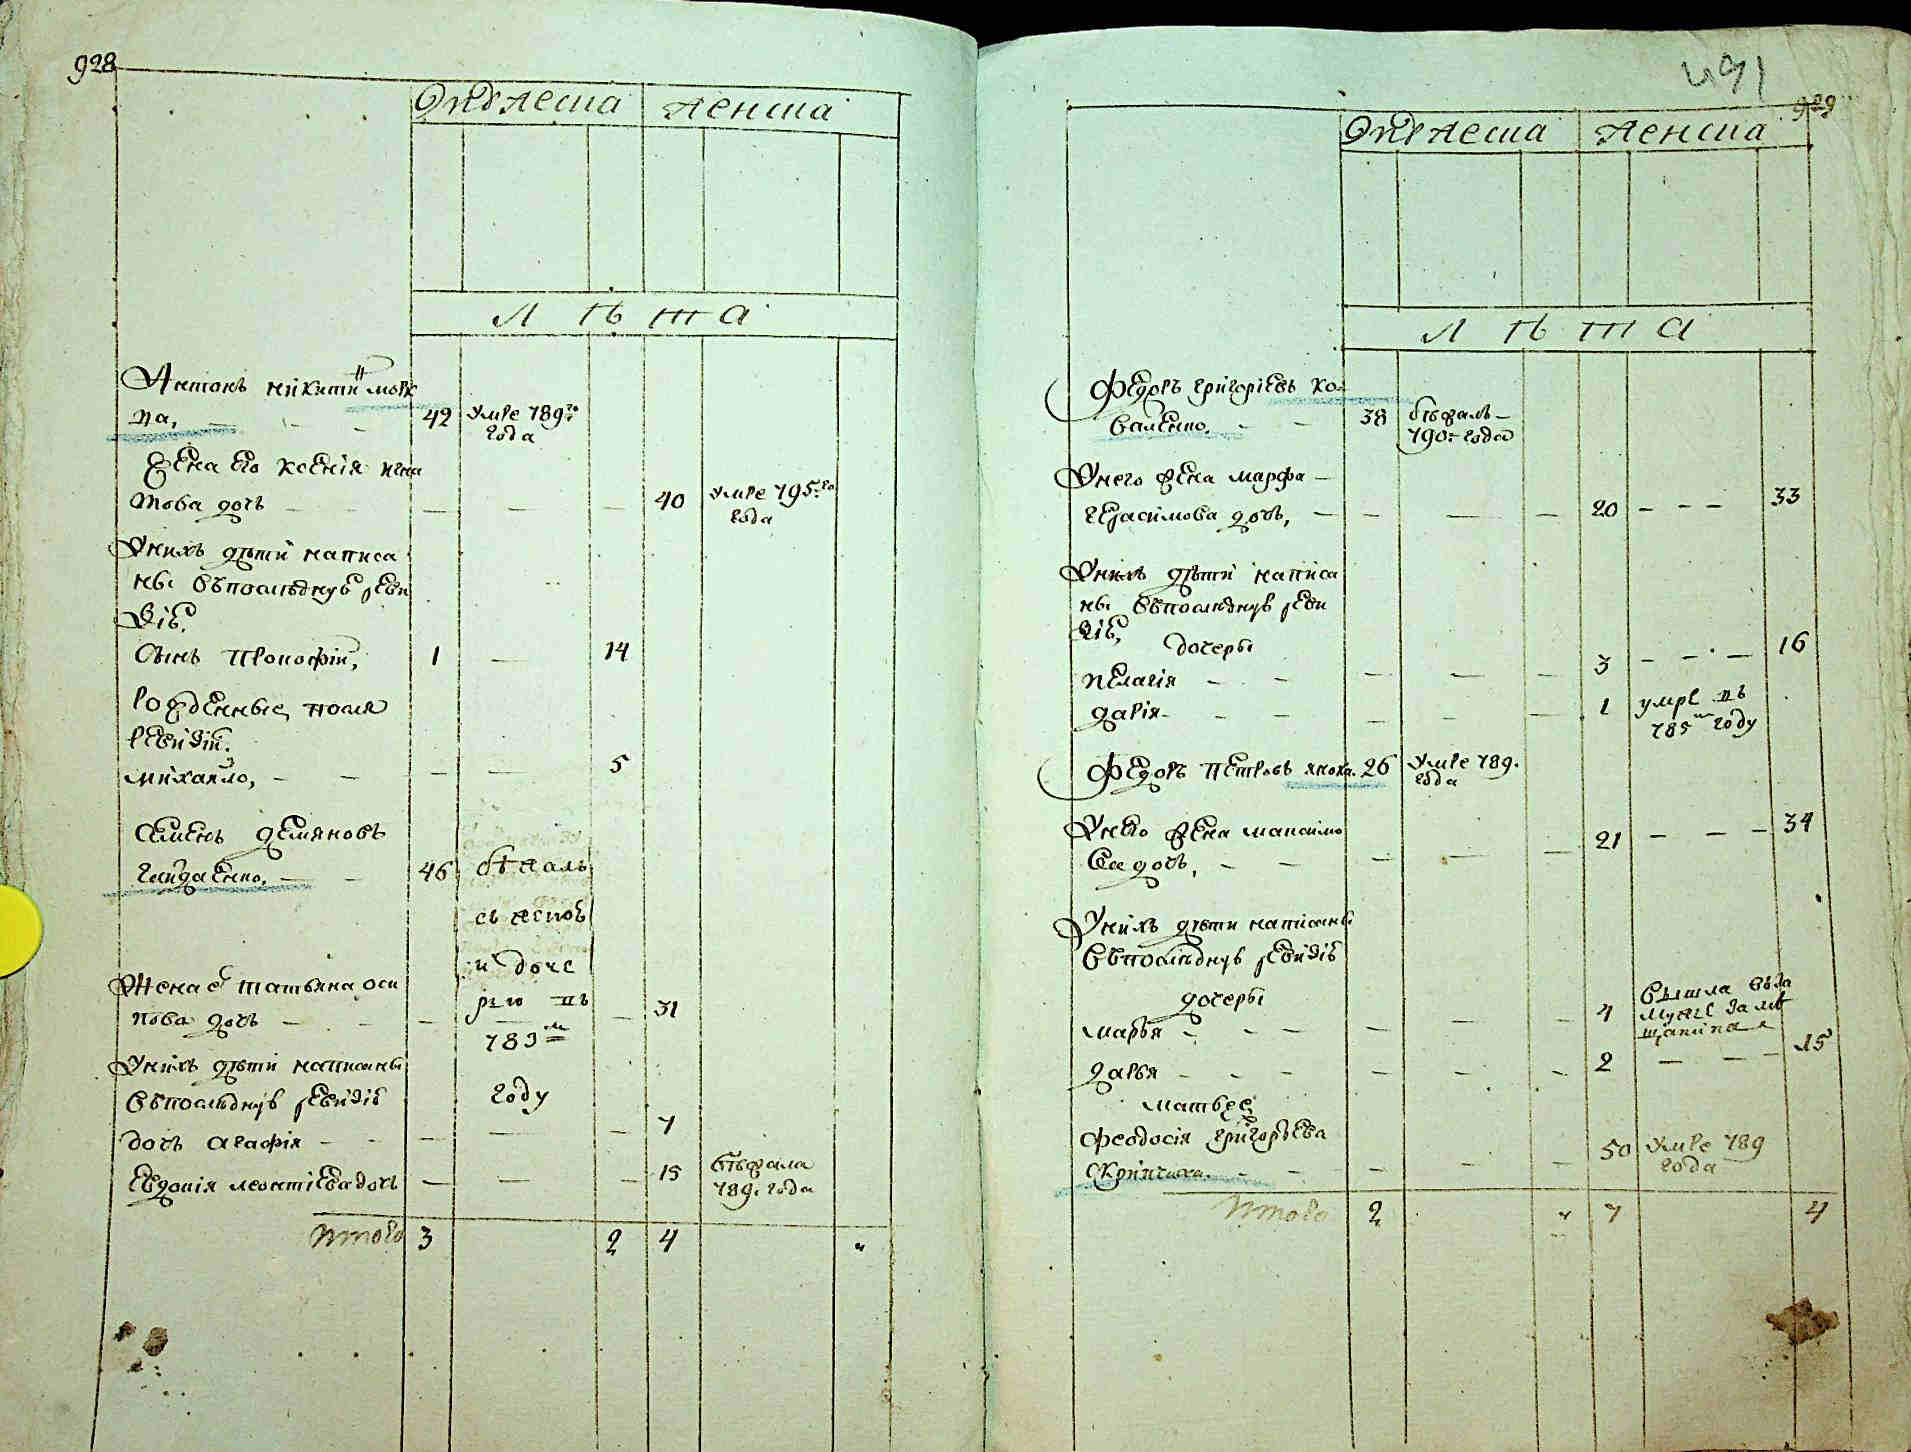 928
Мужеска женска
ЛѢТА
Антонъ никитинъ мовч
на, 42 умре 789го
года
жена его ксения игна
това дочь 40 умре 795го
года
Унихъ дѣти написа
ны впоследнуѣ реви
зіѣ.
Сынъ прокофiй, 1 14
рожденные посля
ревизіи.
михаило, 5
Семенъ демяновъ
гайдаенко, 46 бѣжалъ
съ женоѣ
и доче
рью въ
783м
году
Жена ег татьяна оси
пова дочь 31
Унихъ дѣти написаны
впоследнуѣ ревизіѣ
дочь агафiя 7
Евдокiя леонтiева дочь 15 бѣжала
789. года
Итого 3 2 4 "
491
929
Мужеска женска
ЛѢТА
Федоръ григорiевъ ко
валенко. 38 бѣжалъ
790. года
Унего жена марфа
герасимова дочь, 20 33
Унихъ дѣти написа
ны впоследнуѣ реви
зіѣ, дочеры
пелагiя 3 16
дарiя 1 умре въ
785м году
Федоръ петровъ 26 умре 789.
года
Унего жена максимо
ва дочь, 21 34
Унихъ дѣти написаны
впоследнуѣ ревизіѣ
дочеры
марья 4 вышла въ за
мужже за мѣ
щанина
дарья 2 15
матьре
феодосiя григорьева
скрипчиха. 50 умре 789
года
Итого 2 " 7 4